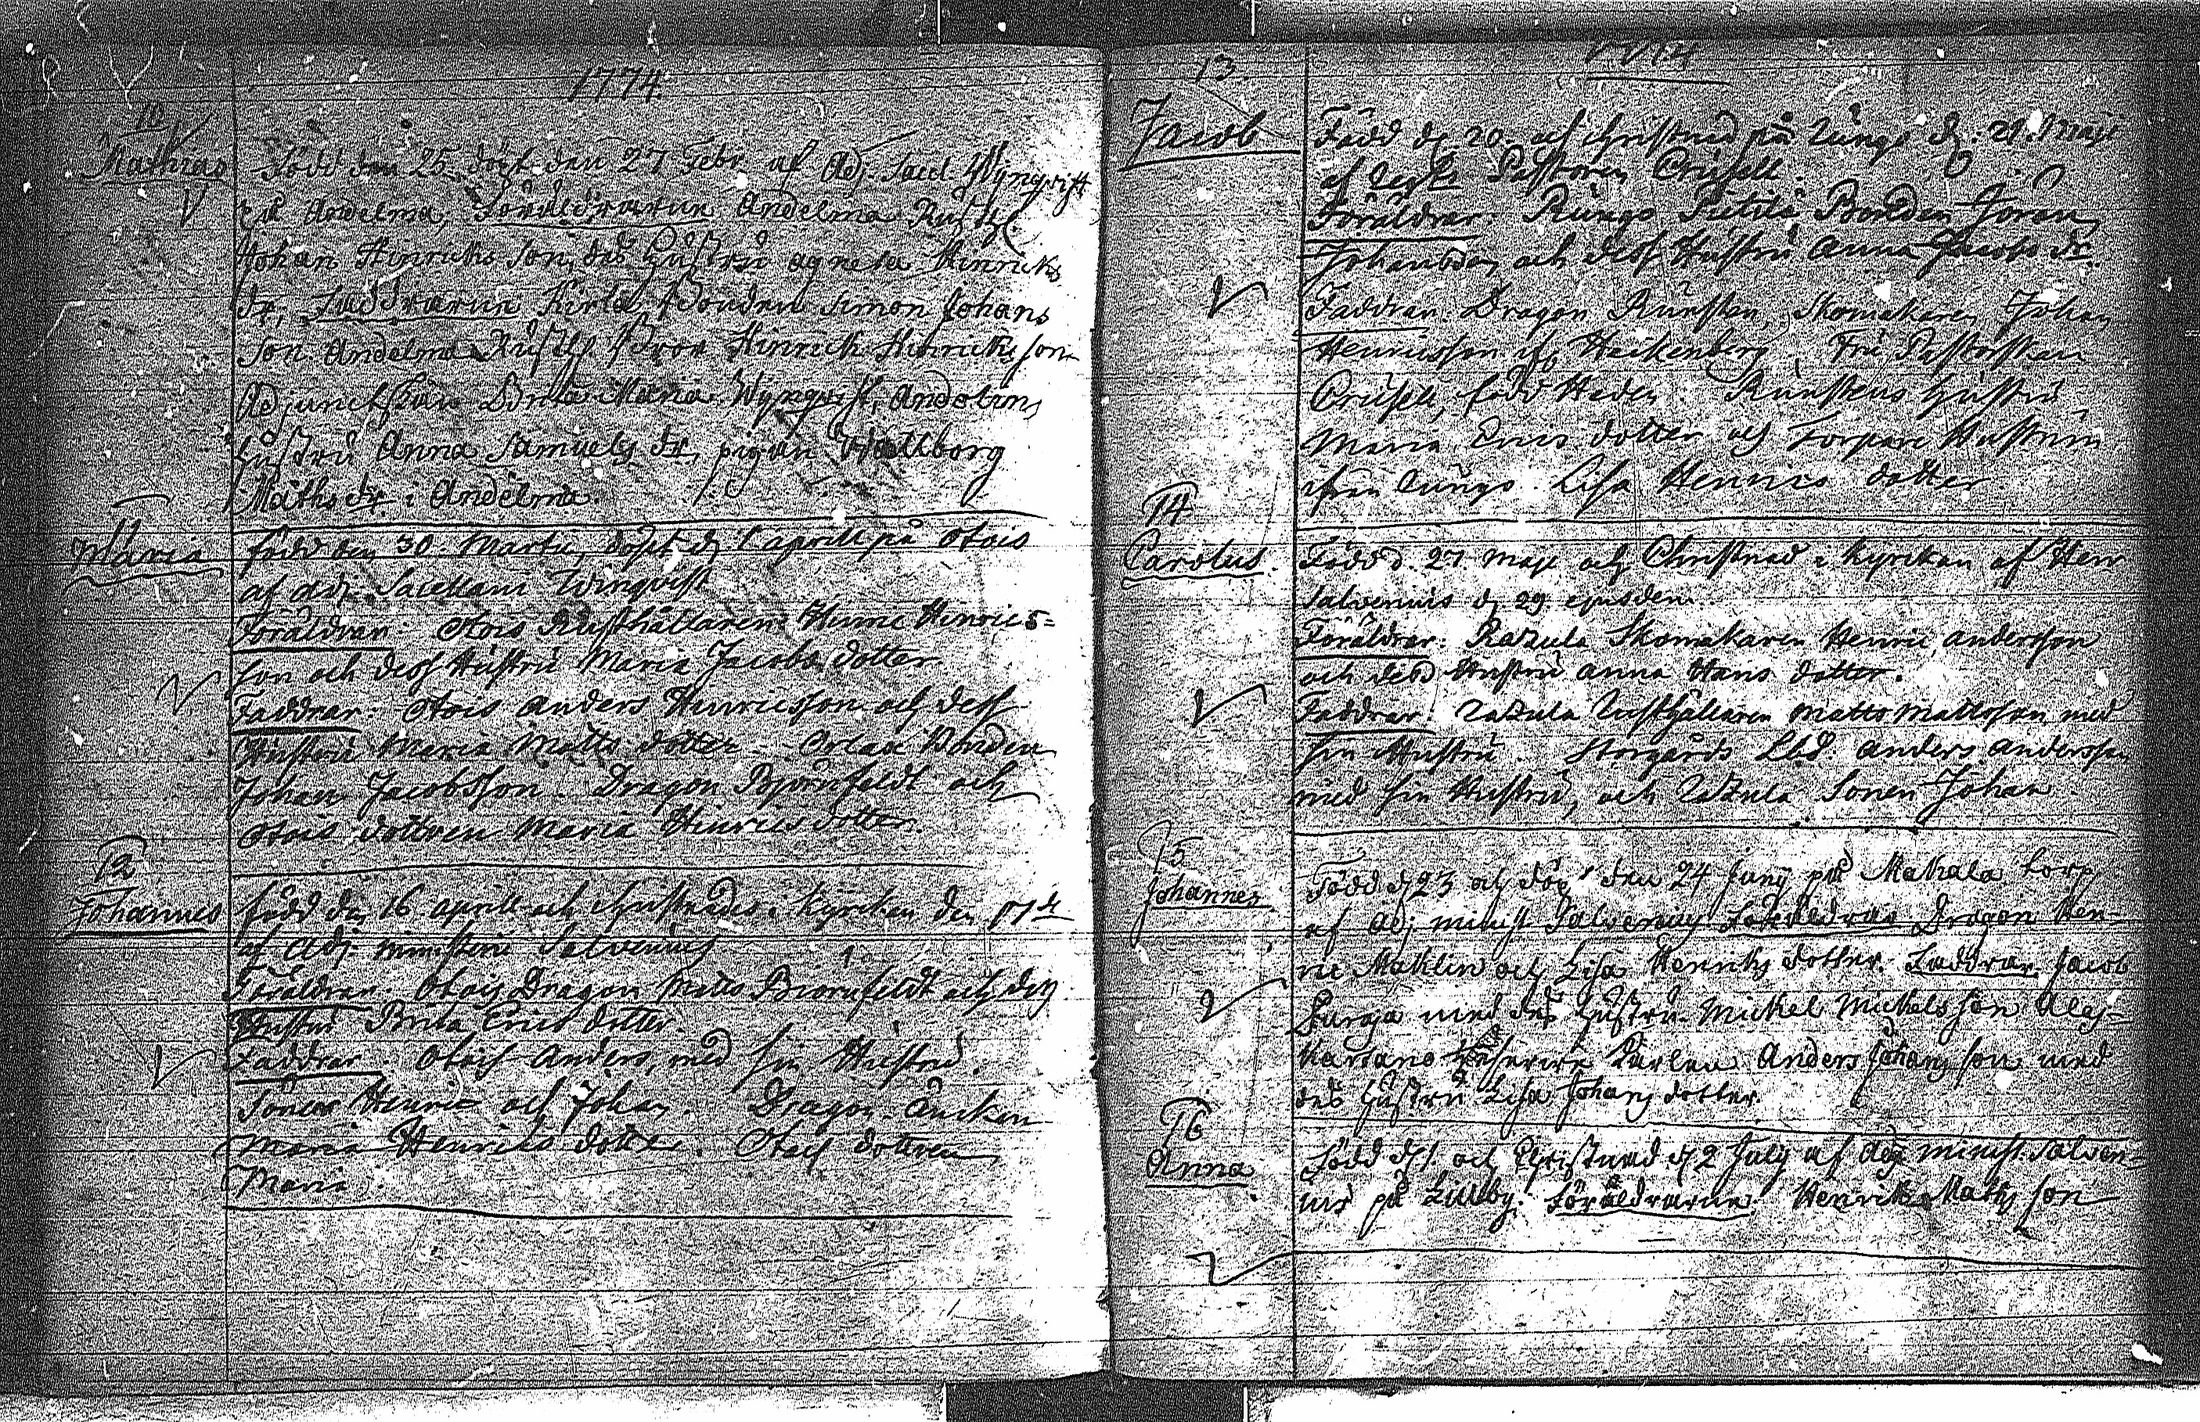 1774.
10
Mathias
Född den 25 döpt den 27 Febr af Adj. Sacel. Wynqvist
på Andelma, Föräldrarne Andelma Rusth.
Johan Hinricks son, des Hustru Agneta Hinricks
dr, Faddrarne Kirla Bonden Simon Johans
son. Andelma Rusth. Bror Hinrich Hinrichsson
Adjunctskan Brita Maria Wynqvist, Andelma
Hustru Anna Samuels dr, pigan Wallborg
Maths dr. i Andelma.
11
Maria
född den 30 Martii, döpt d. 1 aprill på Otois
af adj. Sacellani Winqvist
Föräldrar. Otois Rusthållaren Henric Henrics=
son och dess Hustru Maria Jacobs dotter
Faddrar. Otois Anders Henricsson och dess
Hustru Maria Matts dotter. Bonden
Johan Jacobsson. Dragon Björnfeldt och
Otois dottren Maria Henrics dotter.
12
Johannes
född den 16 aprill och christnades i Kyrckan den 17de
af Adj. ministerii Salvenius
Föräldrar. Otois Dragon Matts Biörnfeldt och dess
Hustru Brita Erics dotter.
Faddrar. Otois Anders, med sin Hustru.
Sönen Henric och Johan. Dragon Änckan
Maria Henrichs dotter. Otois dottren
Maria.
13
1774
Jacob
Född d. 20 och christnad på Lungo d. 21 Maji
af Pastoren Crusell.
Föräldrar. Rungo Pietilä Bonden Jöran
Johansson och dess Hustru Anna Jacobs dr.
Faddrar. Dragon Runsten, Skomakaren Johan
Henricsson Heikenberg. Fru Pastorskan
Crusell, född Heden. Runstens Hustru
Maria Erics dotter och Torpare Hustrun
ifrån Lungo Lisa Henrics dotter
14
Carolus
Född d. 27 Maji och Christnad i Kyrckan af Herr
Salvenius d. 29 ejusdem.
Föräldrar. Razula Skomakaren Henric andersson
och dess Hustru Anna Hans dotter.
Faddrar. Razula Rusthållaren Matts Mattsson med
sin Hustru. Storgårds Anders Andersson
med sin Hustru, och Razula Sonen Johan
15
Johannes
Född d. 23 och döpt den 24 Junij på Makala torp
af Adj minist Salvenius Föräldrar Dragon Hen-
ric Maklin och Lisa Henriks dotter. Faddrar Jacob
med des Hustru. Mickel Mickelsson
Anders Johans son med
des Hustru Lisa Johans dotter.
16
Anna
Född d. 1 och Christnad d. 2 July af Adj minist. Salve-
nius på Lillby. Föräldrarne Henrik Maths son